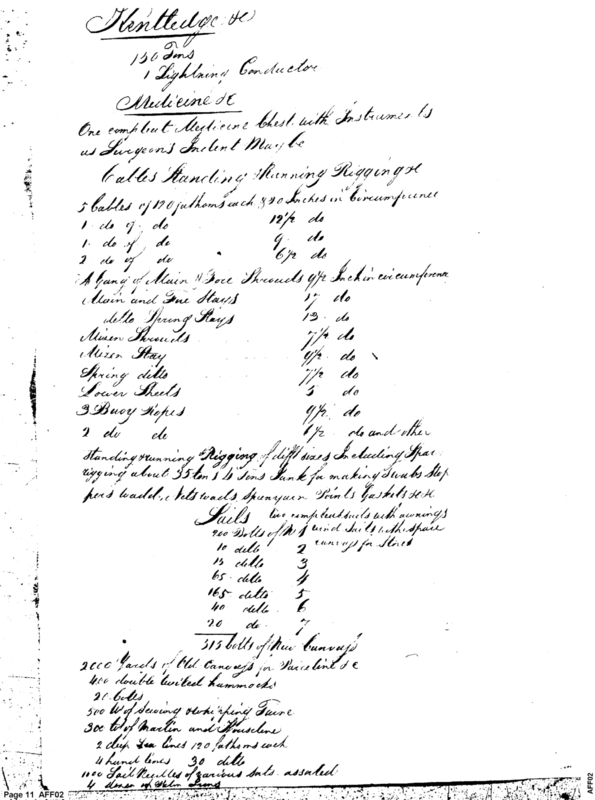 Kentledge &c
150 Tons
1 Lightning Conductor
Medicine &c
One compleat Medicine Chest with Instruments
as Surgeons Indent May be
Cables Standing & Running Rigging &c
5 Cables of 120 fathoms each & 20 Inches in Circumference
1 do of do 12½ do
1 do of do 9 do
2 do of do 6½ do
A Gang of Main & Fore Shrouds 9½ Inch in circumference
Main and Fore Stays 17 do
ditto Spring Stays 13 do
Mizen Shrouds 7½ do
Mizen Stay 9½ do
Spring ditto 7½ do
Lower Sheets 5 do
3 Buoy Ropes 9½ do
2 do do 6½ do and other
Standing & running Rigging of difft sizes Including Spare
rigging about 35 tons 4 Tons Junk for making Swabs Stop
pers wadd, Nets wads Spunyarn Points Gaskets &c &c
Sails two compleat suits with awnings
200 Bolts of No 1 wind Sails with spare
canvass for Stores
10 ditto 2
15 ditto 3
65 ditto 4
165 ditto 5
40 ditto 6
20 do 7
515 bolts of New Canvass
2000 Yards of Old Canvass for Parceling &c
400 double twilled hammocks
20 bolts
500 lb of Sewing & whipping Twine
300 lb of Marlin and Houseline
2 deep Sea lines 120 fathoms each
4 hand lines 30 ditto
1000 Sail Needles of various sorts assorted
4 dozen of Palm Irons
Page 11 AFF02
AFF02